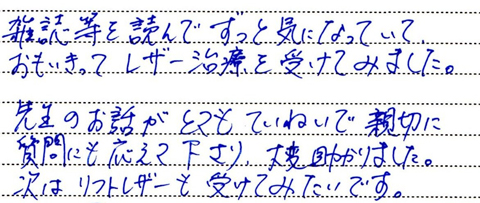 雑読等を読んでずっと気になっていて、
おもいきって レザー治療を受けてみました。
先生のお話がとてもていねいで親切に
質問にも応えて下さり、大変助かりました。
次はリフトレザーも受けてみたいです。